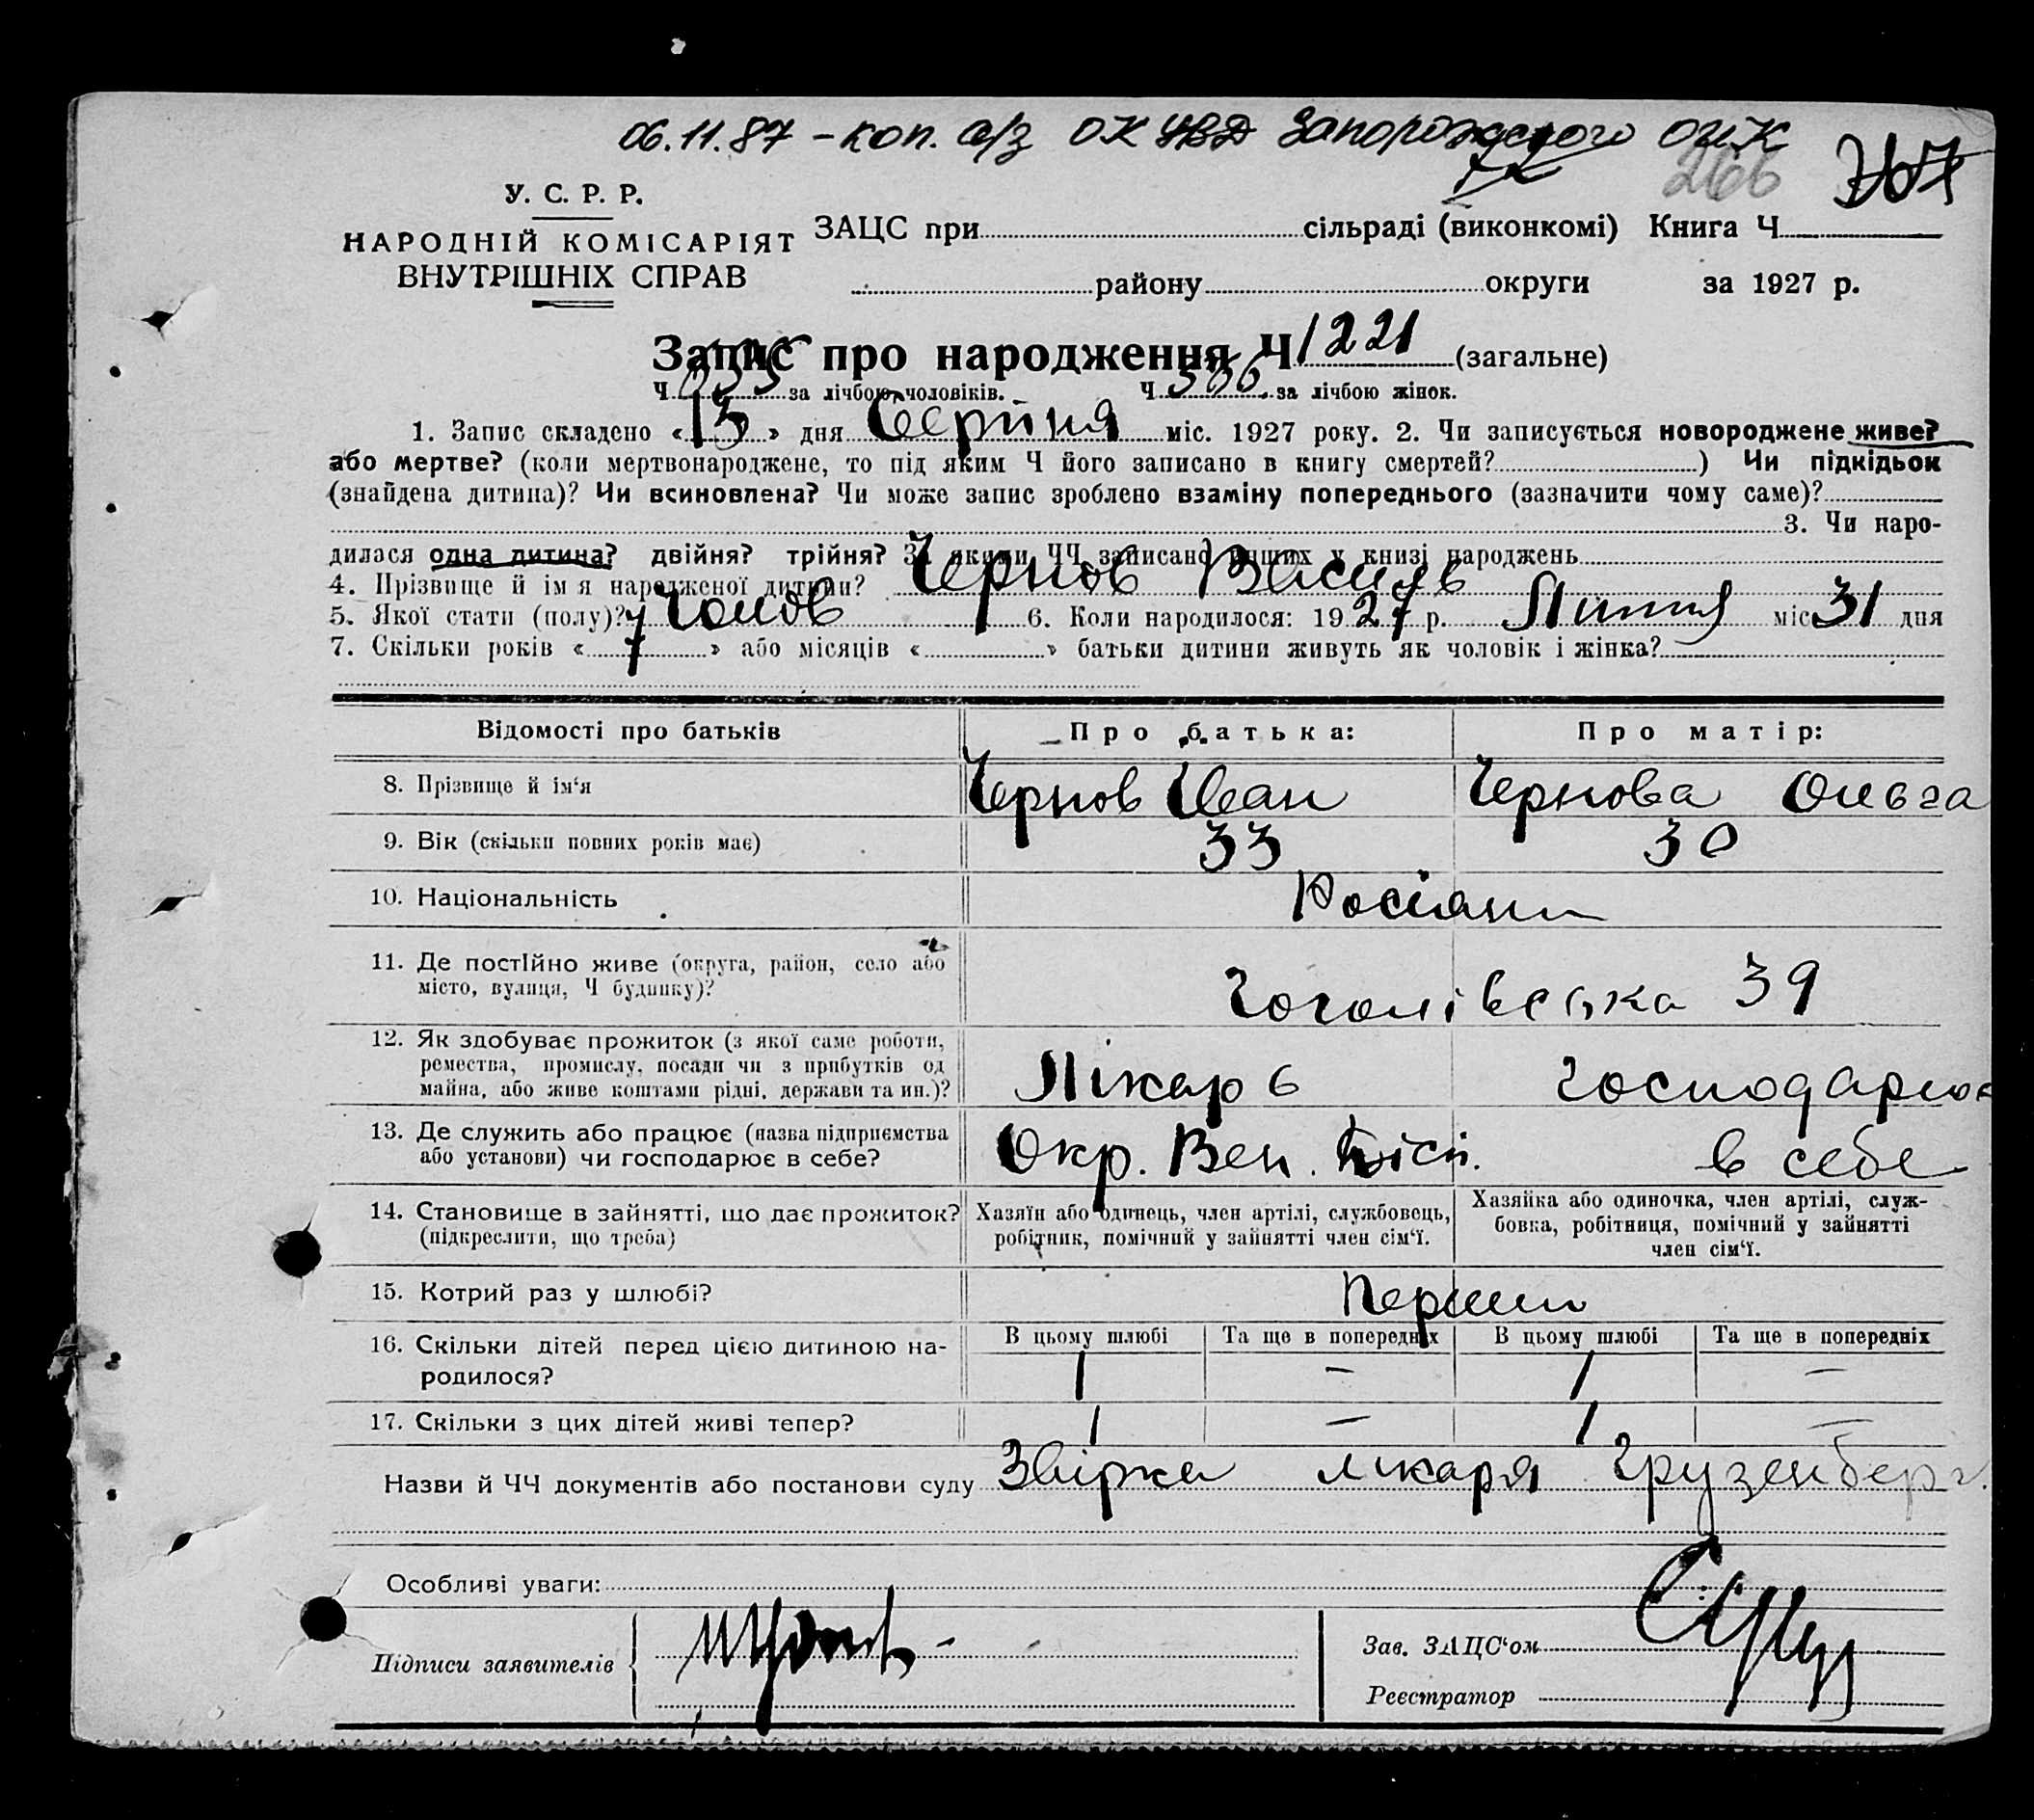 06.11.87 – коп. а/з ОК УВД Запорожского ОИК
266 767
У. С. Р. Р.
НАРОДНІЙ КОМІСАРІЯТ
ВНУТРІШНІХ СПРАВ
ЗАЦС при сільраді (виконкомі) Книга Ч
району округи за 1927 р.
Запис про народження Ч 1221 (загальне)
Ч за лічбою чоловіків. Ч за лічбою жінок.
1. Запис складено «13» дня Серпня міс. 1927 року. 2. Чи записується новороджене живе?
або мертве? (коли мертвонароджене, то під яким Ч його записано в книгу смертей? ) Чи підкідьок
(знайдена дитина)? Чи всиновлена? Чи може запис зроблено взаміну попереднього (зазначити чому саме)?
3. Чи наро-
дилася одна дитина? двійня? трійня? За якими ЧЧ записано инших у книзі народжень
4. Прізвище й ім я народженої дитини? Чернов Василь
5. Якої стати (полу)? Чолов 6. Коли народилося: 1927 р. Липня міс 31 дня
7. Скільки років « 7 » або місяців « » батьки дитини живуть як чоловік і жінка?
Відомості про батьків Про батька: Про матір:
8. Прізвище й ім‘я Чернов Іван Чернова Ольга
9. Вік (скільки повних років має) 33 30
10. Національність Росіяни
11. Де постІйно живе (округа, район, село або
місто, вулиця, Ч будинку)? Гоголівська 39
12. Як здобуває прожиток (з якої саме роботи,
ремества, промислу, посади чи з прибутків од
майна, або живе коштами рідні, держави та ин.)? Лікарь Господарює
13. Де служить або працює (назва підприємства
або установи) чи господарює в себе? Окр. Вен. в себе
14. Становище в зайнятті, що дає прожиток?
(підкреслити, що треба)
Хазяїн або одинець, член артілі, службовець,
робітник, помічний у зайнятті член сім‘ї.
Хазяйка або одиночка, член артілі, служ-
бовка, робітниця, помічний у зайнятті
член сім‘ї.
15. Котрий раз у шлюбі? Перший
16. Скільки дітей перед цією дитиною на-
родилося?
В цьому шлюбі Та ще в попередніх В цьому шлюбі Та ще в попередніх
1 – 1 –
17. Скільки з цих дітей живі тепер? 1 – 1 –
Назви й ЧЧ документів або постанови суду Звірка лікаря Грузенберг.
Особливі уваги:
Підписи заявителів
Зав. ЗАЦС‘ом
Реєстратор